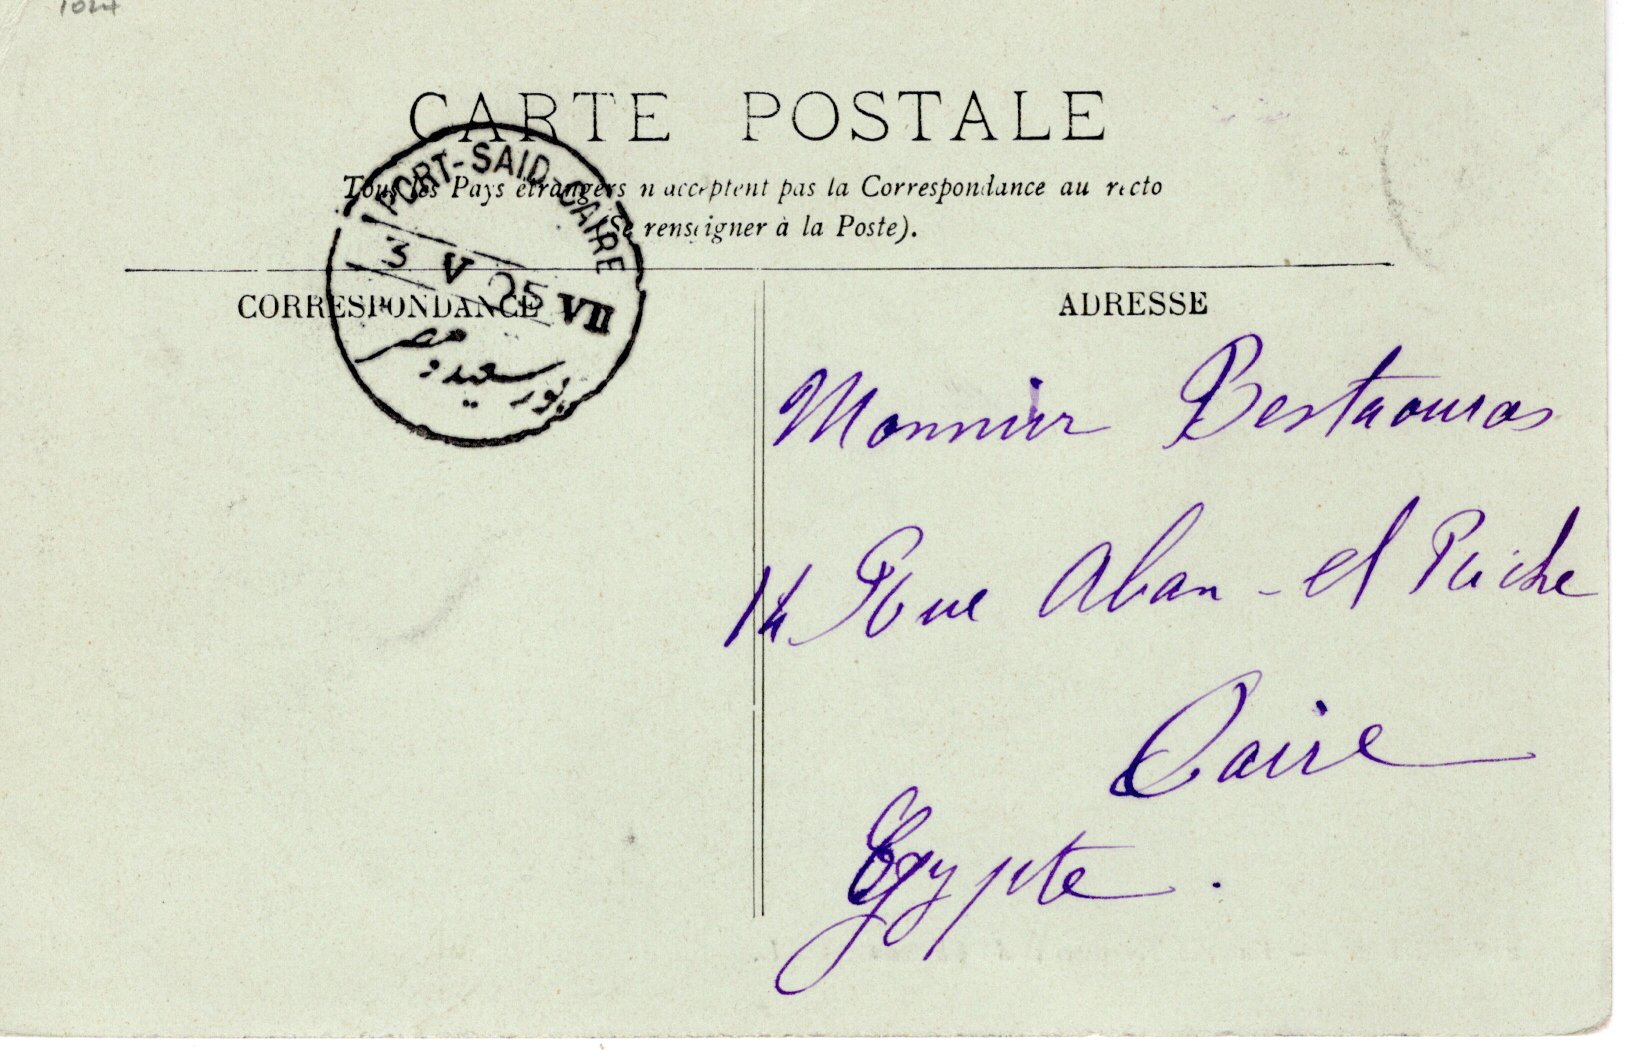 1024
CARTE POSTALE
Tous les Pays étrangers n'acceptent pas la Correspondance au recto
(Se renseigner à la Poste).
PORT-SAID-CAIRE
3 V 05 VII
مصر
بور سعيد و
CORRESPONDANCE
ADRESSE
Monsieur
14 Rue Aban - el
Caire
Egypte.